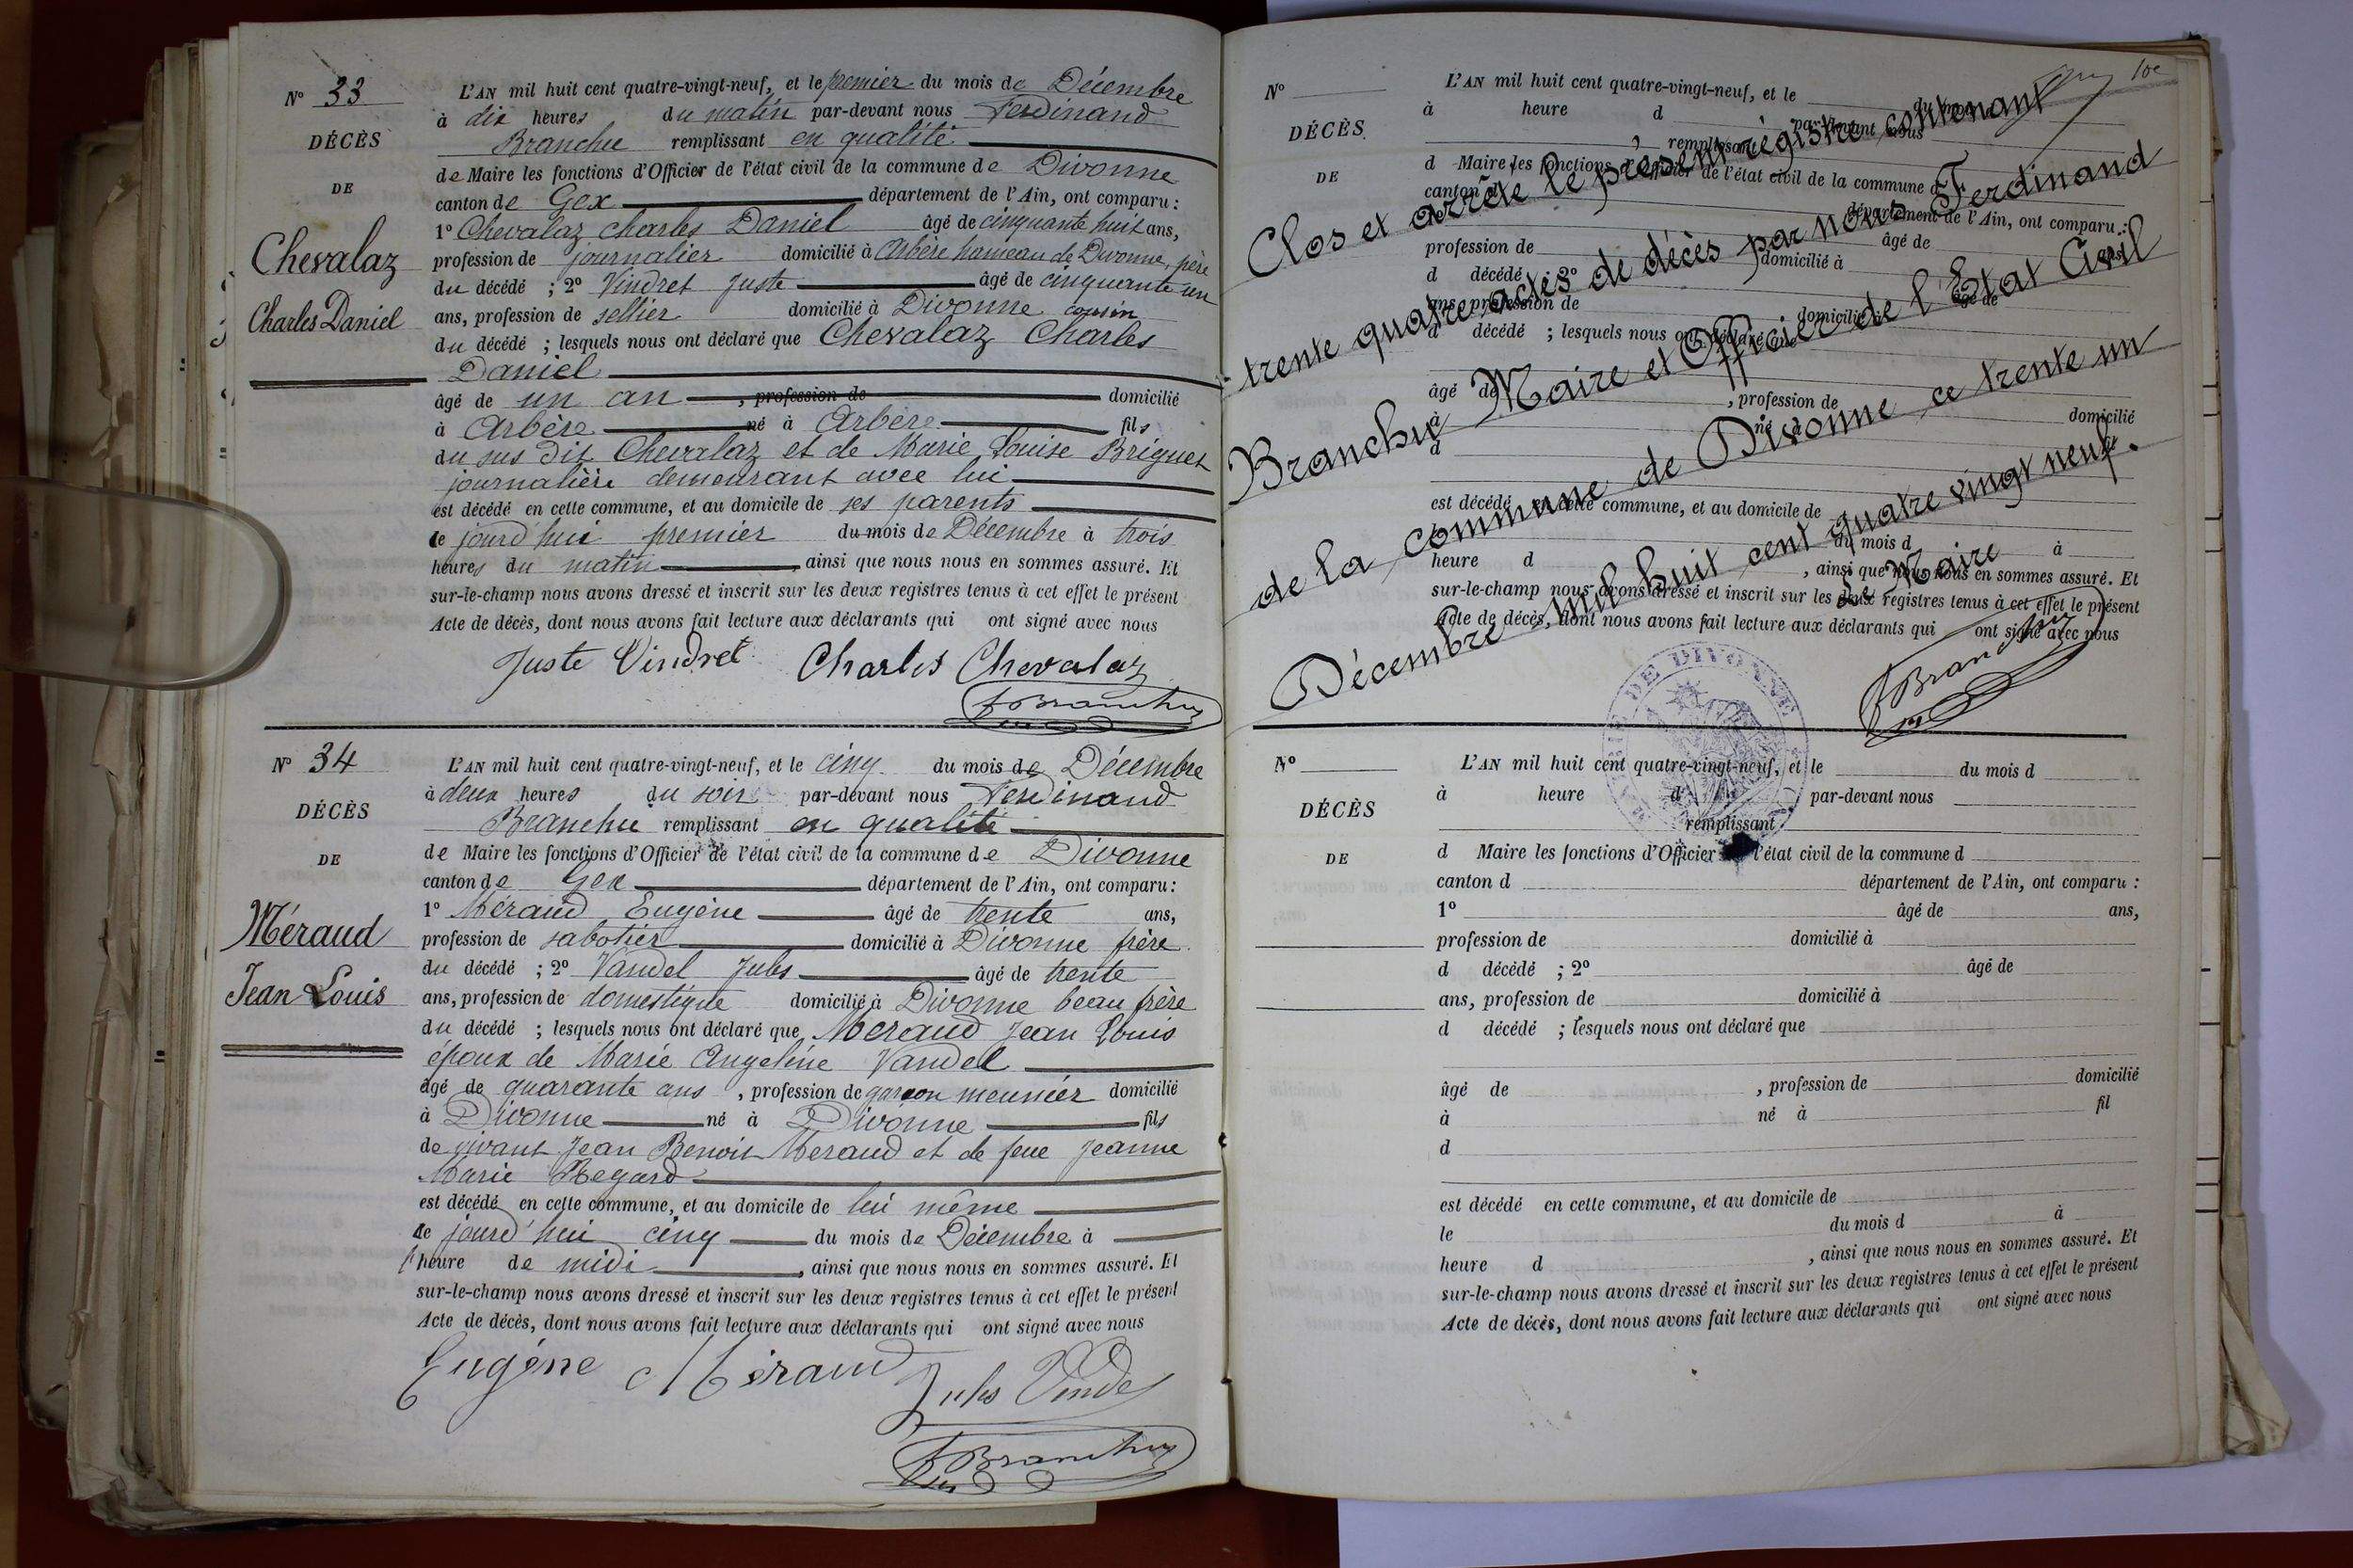 N° 33
DÉCÈS
DE
Chevalaz
Charles Daniel
L'AN mil huit cent quatre-vingt-neuf, et le premier du mois de Décembre
à dix heures du matin par-devant nous Ferdinand
Branchu remplissant en qualité
de Maire les fonctions d'Officier de l'état civil de la commune de Divonne
canton de Gex département de l'Ain, ont comparu :
1° Chevalaz Charles Daniel âgé de cinquante huit ans,
profession de journalier domicilié à Arbère hameau de Divonne, père
du décédé ; 2° Vindret Juste âgé de cinquante un
ans, profession de sellier domicilié à Divonne cousin
du décédé ; lesquels nous ont déclaré que Chevalaz Charles
Daniel
âgé de un an , profession de domicilié
à Arbère né à Arbère fils
du sus dit Chevalaz et de Marie Louise Briguet
journalière demeurant avec lui
est décédé en cette commune, et au domicile de ses parents
le jourd'hui premier du mois de Décembre à trois
heures du matin , ainsi que nous nous en sommes assuré. Et
sur-le-champ nous avons dressé et inscrit sur les deux registres tenus à cet effet le présent
Acte de décès, dont nous avons fait lecture aux déclarants qui ont signé avec nous
Juste Vindret Charles Chevalaz
F Branchu
N° 34
DÉCÈS
DE
Méraud
Jean Louis
L'AN mil huit cent quatre-vingt-neuf, et le cinq du mois de Décembre
à deux heures du soir par-devant nous Ferdinand
Branchu remplissant en qualité
de Maire les fonctions d'Officier de l'état civil de la commune de Divonne
canton de Gex département de l'Ain, ont comparu :
1° Méraud Eugène âgé de trente ans,
profession de sabotier domicilié à Divonne frère
du décédé ; 2° Vandel Jules âgé de trente
ans, profession de domestique domicilié à Divonne beau frère
du décédé ; lesquels nous ont déclaré que Meraud Jean Louis
époux de Marie Angeline Vandel
âgé de quarante ans , profession de garçon meunier domicilié
à Divonne né à Divonne fils
de vivant Jean Benoit Meraud et de feue Jeanne
Marie Regard
est décédé en cette commune, et au domicile de lui même
le jourd'hui cinq du mois de Décembre à
heure de midi , ainsi que nous nous en sommes assuré. Et
sur-le-champ nous avons dressé et inscrit sur les deux registres tenus à cet effet le présent
Acte de décès, dont nous avons fait lecture aux déclarants qui ont signé avec nous
Eugène Méraud Jules Vandel
F Branchu
N°
DÉCÈS
DE
L'AN mil huit cent quatre-vingt-neuf, et le du mois d
à heure d par-devant nous
remplissant
d Maire les fonctions d'Officier de l'état civil de la commune d
canton d département de l'Ain, ont comparu :
âgé de ans,
profession de domicilié à
d décédé ; 2° âgé de
ans, profession de domicilié à
d décédé ; lesquels nous ont déclaré que
âgé de , profession de domicilié
à né à fil
d
est décédé en cette commune, et au domicile de
du mois d à
heure d , ainsi que nous nous en sommes assuré. Et
sur-le-champ nous avons dressé et inscrit sur les deux registres tenus à cet effet le présent
Acte de décès, dont nous avons fait lecture aux déclarants qui ont signé avec nous
Clos et arrêté le présent régistre contenant
trente quatre actes de décès par nous Ferdinand
Branchu Maire et Officier de l'Etat Civil
de la commune de Divonne ce trente un
Décembre mil huit cent quatre vingt neuf.
Le Maire
F Branchu
MAIRIE DE DIVONNE
N°
DÉCÈS
DE
L'AN mil huit cent quatre-vingt-neuf, et le du mois d
à heure d par-devant nous
remplissant
d Maire les fonctions d'Officier de l'état civil de la commune d
canton d département de l'Ain, ont comparu :
1° âgé de ans,
profession de domicilié à
d décédé ; 2° âgé de
ans, profession de domicilié à
d décédé ; lesquels nous ont déclaré que
âgé de , profession de domicilié
à né à fil
d
est décédé en cette commune, et au domicile de
le du mois d à
heure d , ainsi que nous nous en sommes assuré. Et
sur-le-champ nous avons dressé et inscrit sur les deux registres tenus à cet effet le présent
Acte de décès, dont nous avons fait lecture aux déclarants qui ont signé avec nous